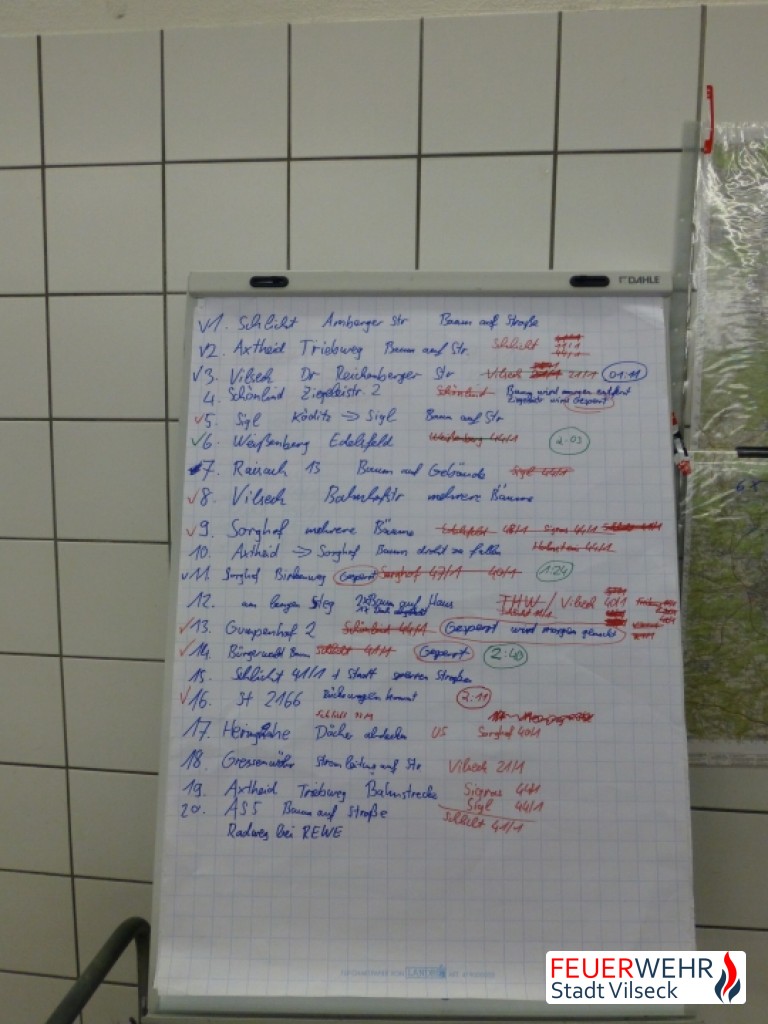 DAHLE
√1. Schlicht Amberger Str Baum auf Straße
√2. Axtheid Triebweg Baum auf Str. Schlicht 44/1
√3. Vilseck Dr Reichenberger Str Vilseck 21/1 21/1 01:11
4. Schönlind Ziegeleistr. 2 Schönlind Baum wird morgen entfernt
Ziegeleistr wird Gesperrt
√5. Sigl Ködritz => Sigl Baum auf Str
√6. Weißenberg Edelsfeld Weißenberg 44/1 2:03
7. Raisach 13 Baum auf Gebäude Sigl 44/1
√8. Vilseck Bahnhofstr mehrere Bäume
√9. Sorghof mehrere Bäume 48/1 Sigras 44/1
10. Axtheid => Sorghof Baum droht zu fallen 44/1
√11. Sorghof Birkenweg Gesperrt Sorghof 47/1 40/1 1:24
12. am langen Steg 2x Baum auf Haus THW / Vilseck 40/1
√13. Gumpenhof 2 Schönlind 44/1 Gesperrt wird morgen gemacht
√14. Bürgerwald Baum Schlicht 41/1 Gesperrt 2:40
15. Schlicht 41/1 + Stadt sperren Straßen
√16. St 2166 Rüstwagen kommt 2:11
17. Heringnohe Dächer abdecken US Sorghof 40/1
18. Gressenwöhr Stromleitung auf Str Vilseck 21/1
19. Axtheid Triebweg Bahnstrecke Sigras 44/1
Sigl 44/1
20. AS 5 Baum auf Straße Schlicht 41/1
Radweg bei REWE
LANDRÉ
FEUERWEHR
Stadt Vilseck